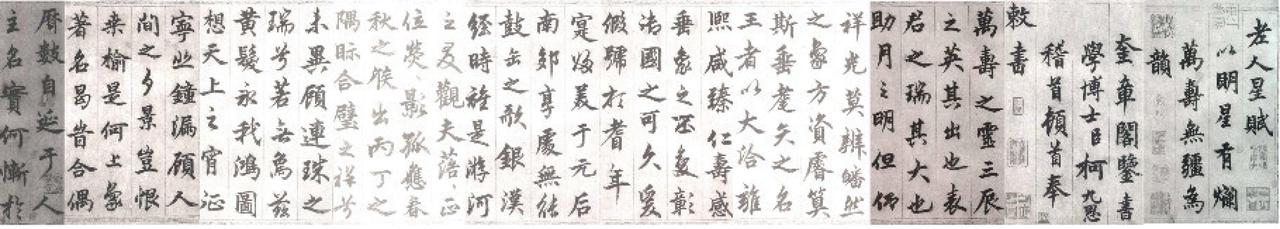 老人星賦
以明星有爛
萬壽無疆為
韻
奎章閣鑒書
學博士臣柯九思
稽首頓首奉
敕書
萬壽之靈三辰
之英其出也表
君之瑞其大也
助月之明但仰
祥光莫辨皤然
之象方資睿算
斯垂耄矣之名
王者以大洽雍
熙咸臻仁壽感
垂象之彰
國之可久爰
假號於耆年
寔媲美于元后
南郊享處無
鼓缶之歌銀漢
經時詎是濟河
之叟觀夫落落正
位熒熒影孤應春
秋之候出丙丁之
隅昞合璧之祥兮
未異顧連珠之
瑞兮若無為茲
黃髮永我鴻圖
想天上之宵征
寧此鐘漏顧人
間之夕景豈恨
桑榆是何上象
著名曷昔合偶
曆數自延于人
主名實何慚於